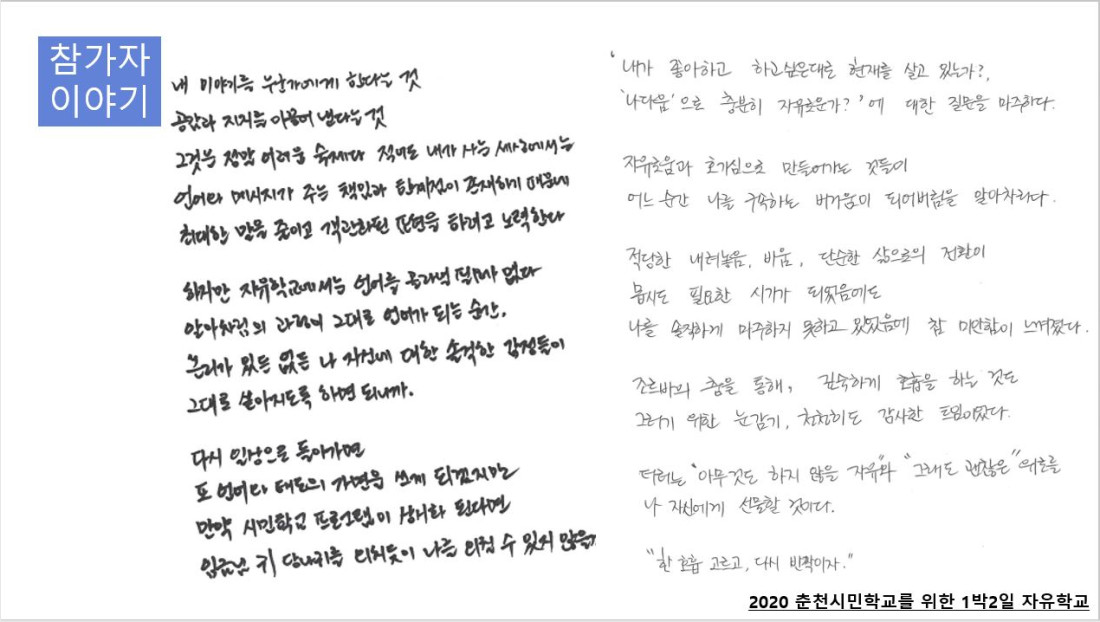 참가자
이야기
내 이야기를 누군가에게 한다는 것
공감과 지지를 이끌어 낸다는 것
그것은 정말 어려운 숙제다 적어도 내가 사는 세계에서는
언어와 메시지가 주는 책임과 한계점이 존재하기 때문에
최대한 말을 줄이고 객관화된 표현을 하려고 노력한다
하지만 자유학교에서는 언어를 골라낼 필요가 없다
알아차림의 과정이 그대로 언어가 되는 순간,
논리가 있든 없든 나 자신에 대한 솔직한 감정들이
그대로 쏟아지도록 하면 되니까.
다시 일상으로 돌아가면
또 언어와 태도의 가면을 쓰게 되겠지만
만약 시민학교 프로그램이 상시화 된다면
임금님 귀 당나귀를 외치듯이 나를 외칠 수 있지 않을까
'내가 좋아하고 하고싶은대로 현재를 살고 있는가?,
'나다움'으로 충분히 자유로운가?'에 대한 질문을 마주하다.
자유로움과 호기심으로 만들어가는 것들이
어느 순간 나를 구속하는 버거움이 되어버림을 알아차리다.
적당한 내려놓음, 비움, 단순한 삶으로의 전환이
몹시도 필요한 시기가 되었음에도
나를 솔직하게 마주하지 못하고 있었음에 참 미안함이 느껴졌다.
조르바의 춤을 통해, 깊숙하게 호흡을 하는 것도
그러기 위한 눈감기, 천천히도 감사한 트임이었다.
터러는 "아무것도 하지 않을 자유"와 "그래도 괜찮은" 위로를
나 자신에게 선물할 것이다.
"한 호흡 고르고, 다시 반짝이자."
2020 춘천시민학교를 위한 1박2일 자유학교